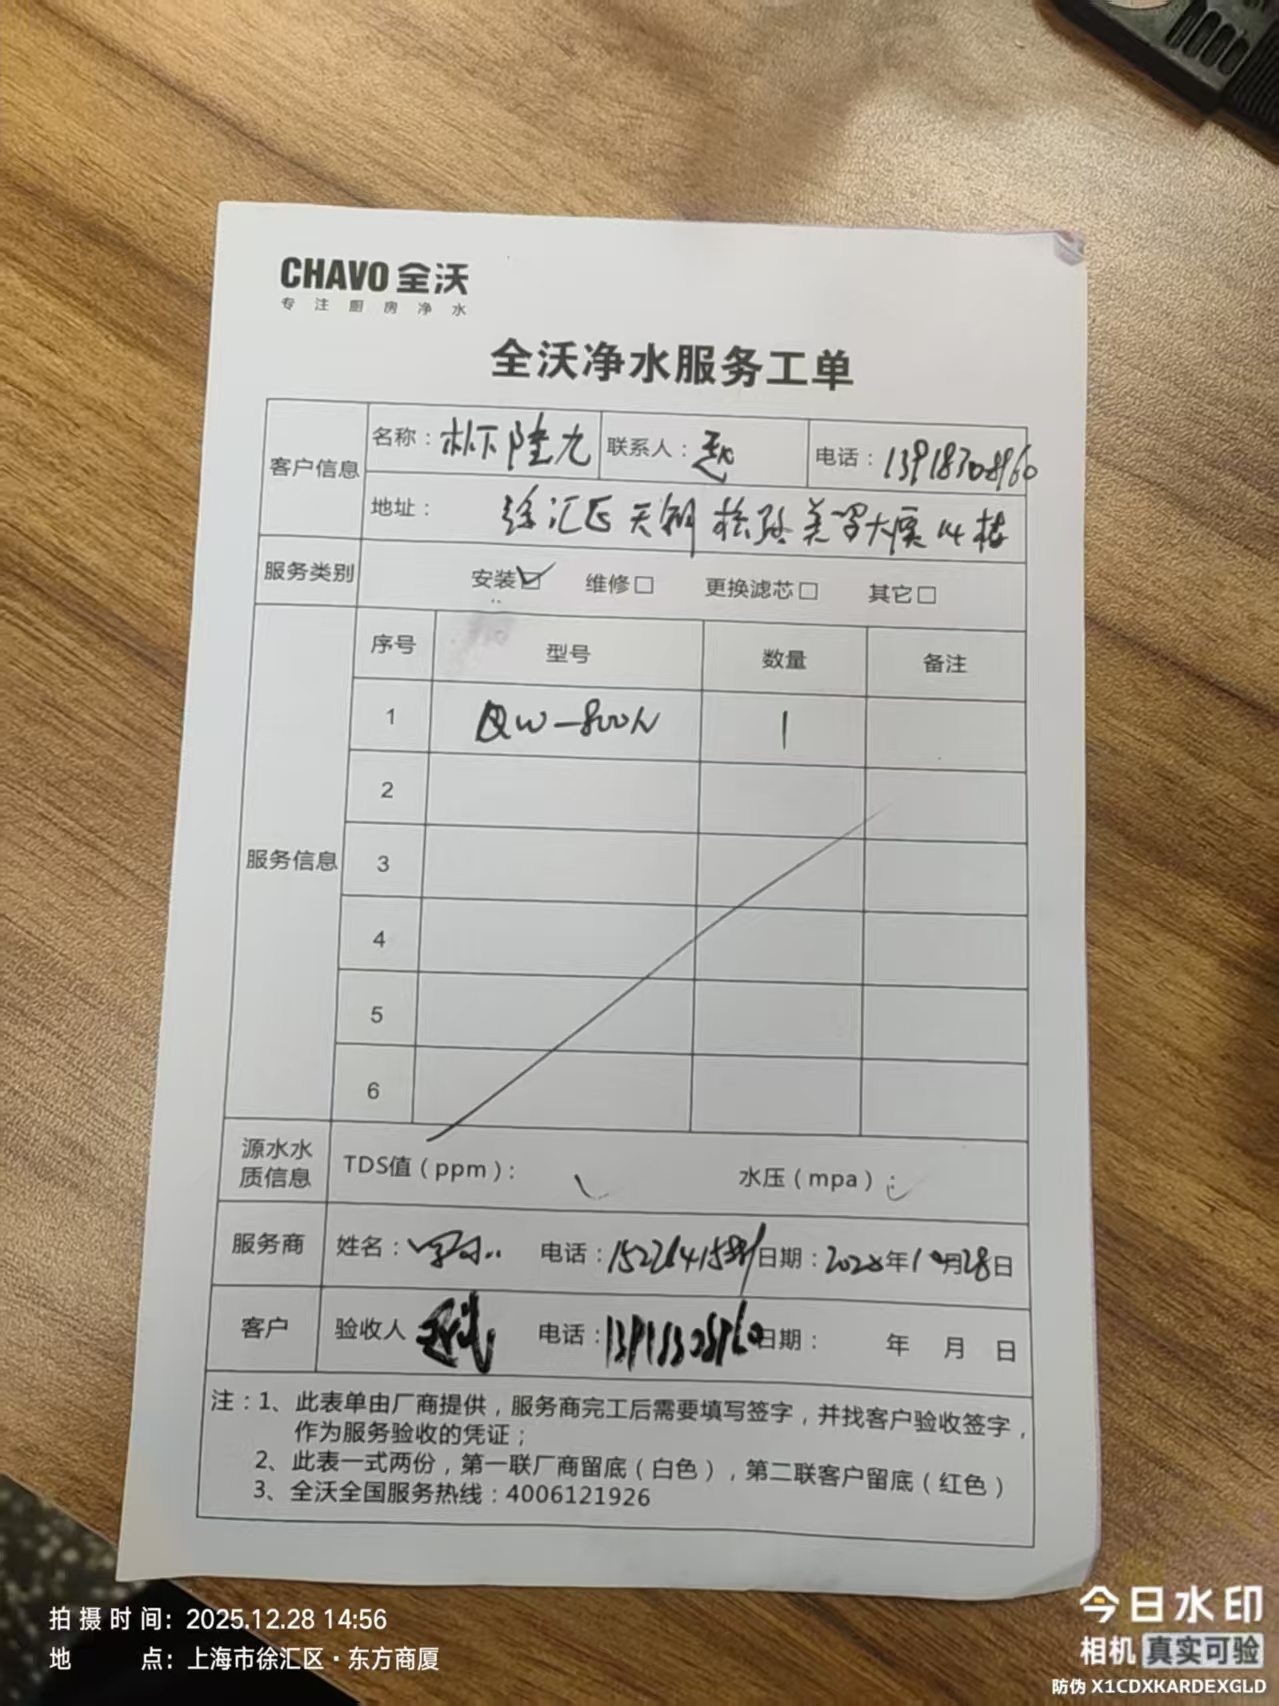 CHAVO 全沃
专注厨房净水
全沃净水服务工单
客户信息 名称： 联系人： 电话：
地址：徐汇区天钥桥路美罗大厦14楼
服务类别 安装☑ 维修□ 更换滤芯□ 其它□
服务信息 序号 型号 数量 备注
1 QW-800N 1
2
3
4
5
6
源水水质信息 TDS值（ppm）： 水压（mpa）：
服务商 姓名： 电话： 日期： 年 月28日
客户 验收人 电话： 日期： 年 月 日
注：1、此表单由厂商提供，服务商完工后需要填写签字，并找客户验收签字，
作为服务验收的凭证；
2、此表一式两份，第一联厂商留底（白色），第二联客户留底（红色）
3、全沃全国服务热线：4006121926
拍摄时间：2025.12.28 14:56
地点：上海市徐汇区·东方商厦
今日水印
相机 真实可验
防伪 X1CDXKARDEXGLD